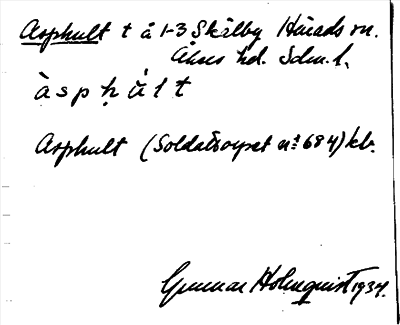 Asphult t å 1-3 Skälby Härads sn.
Åkers hd. Sdm. l.
àspḥú̀lt
Asphult (Soldattorpet nr 684) kb.
Gunnar Holmquist 1934.